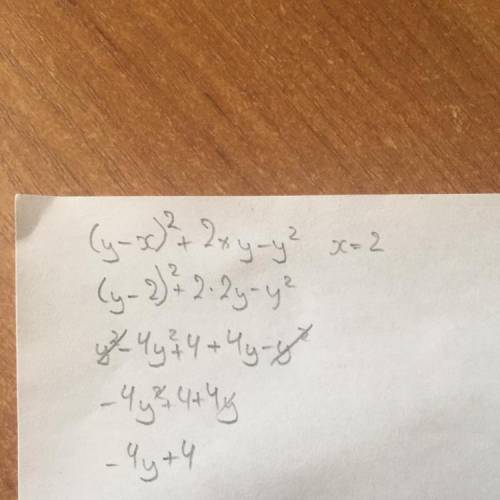 (y-x)²+2xy-y² x=2
(y-2)²+2·2y-y²
y²-4y²+4+4y-y²
-4y²+4+4y
-4y+4